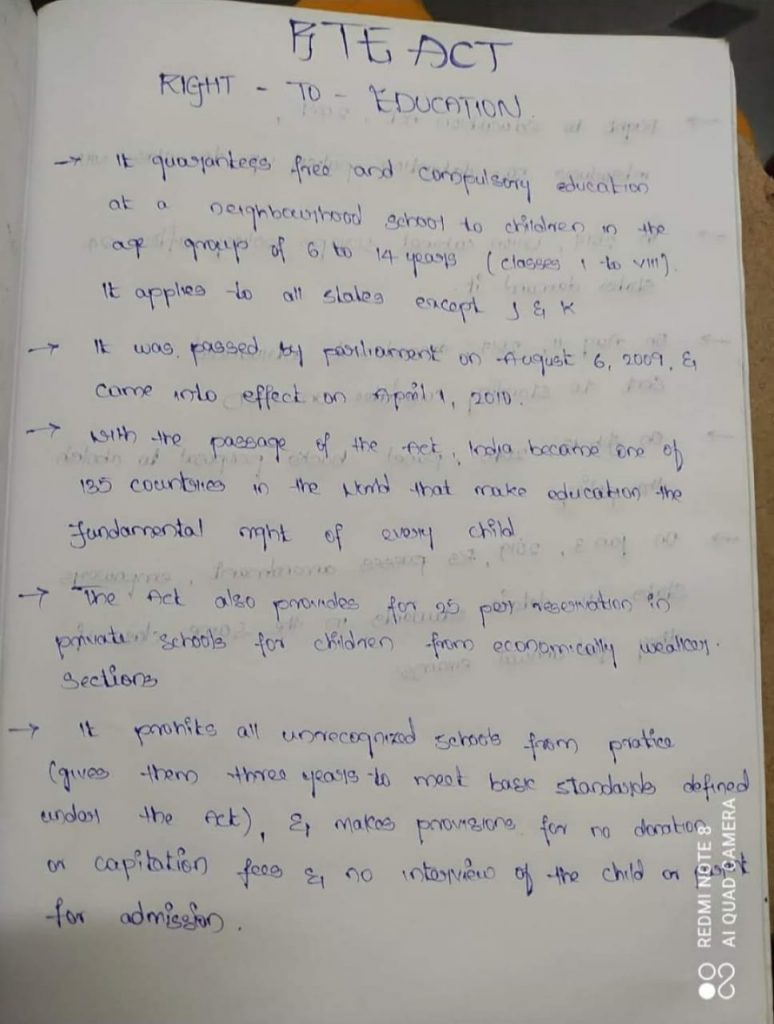 RTE ACT
RIGHT - TO - EDUCATION
→ It guarantees free and compulsory education
at a neighbourhood school to children in the
age group of 6 to 14 years (classes 1 to VIII).
It applies to all states except J & K
→ It was passed by parliament on August 6, 2009, &
came into effect on April 1, 2010.
→ With the passage of the Act, India became one of
135 countries in the World that make education the
fundamental right of every child
→ The Act also provides for 25 per reservation in
private schools for children from economically weaker
sections
→ It prohits all unrecognized schools from pratice
(gives them three years to meet basic standards defined
under the Act), & makes provisions for no donation
or capitation fees & no interview of the child or parent
for admission.
REDMI NOTE 8
AI QUAD CAMERA